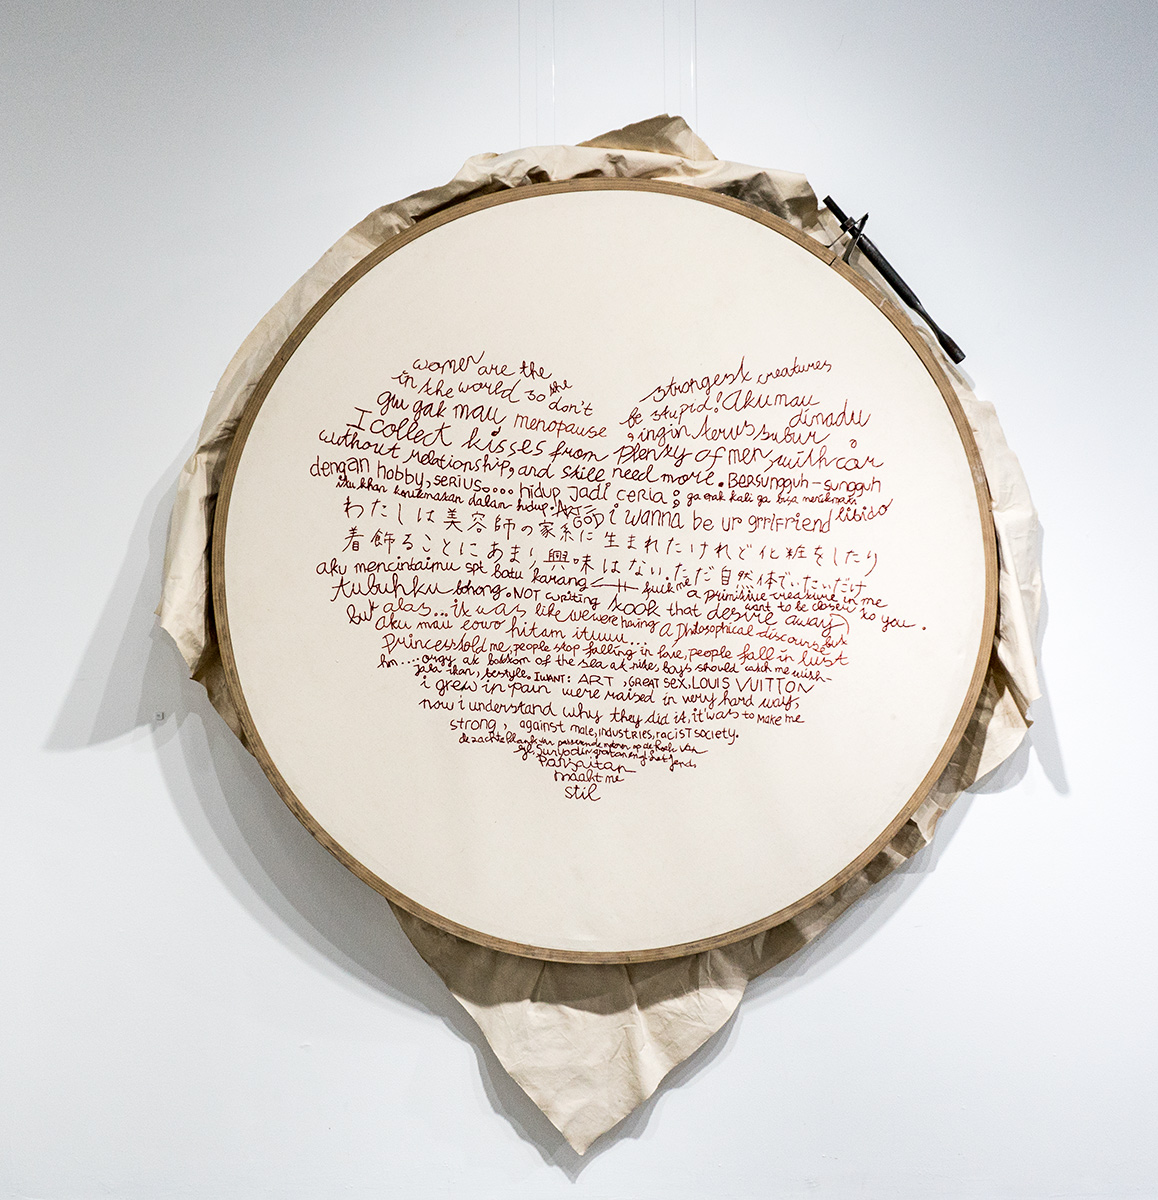 women are the strongest creatures
in the world so the don't be stupid! Aku mau dimadu
gw gak mau menopause, ingin terus subur
I collect kisses from plenty of men, with or
without relationship, and still need more. Bersungguh-sungguh
dengan hobby, serius.... hidup jadi ceria;
dalam hidup. ART = GOD i wanna be ur grrlfriend libido
わたしは美容師の家系に生まれたけれど化粧をしたり
着飾ることにあまり興味はない。ただ自然体でいたいだけ
aku mencintaimu spt batu karang fuck me a primitive creature in me
tubuhku bohong. NOT writing took that desire away want to be closer to you.
but alas... it was like we were having a philosophical discourse but
aku mau cowo hitam ituuu...
Princess told me, people stop falling in love, people fall in lust
hm.... orgy at bottom of the sea at nite, boys should catch me with
jala ikan, bestyle. I WANT: ART, GREAT SEX, LOUIS VUITTON
i grew in pain were raised in very hard way,
now i understand why they did it, it was to make me
strong, against male, industries, racist society.
de zachte klank van
maakt me
stil